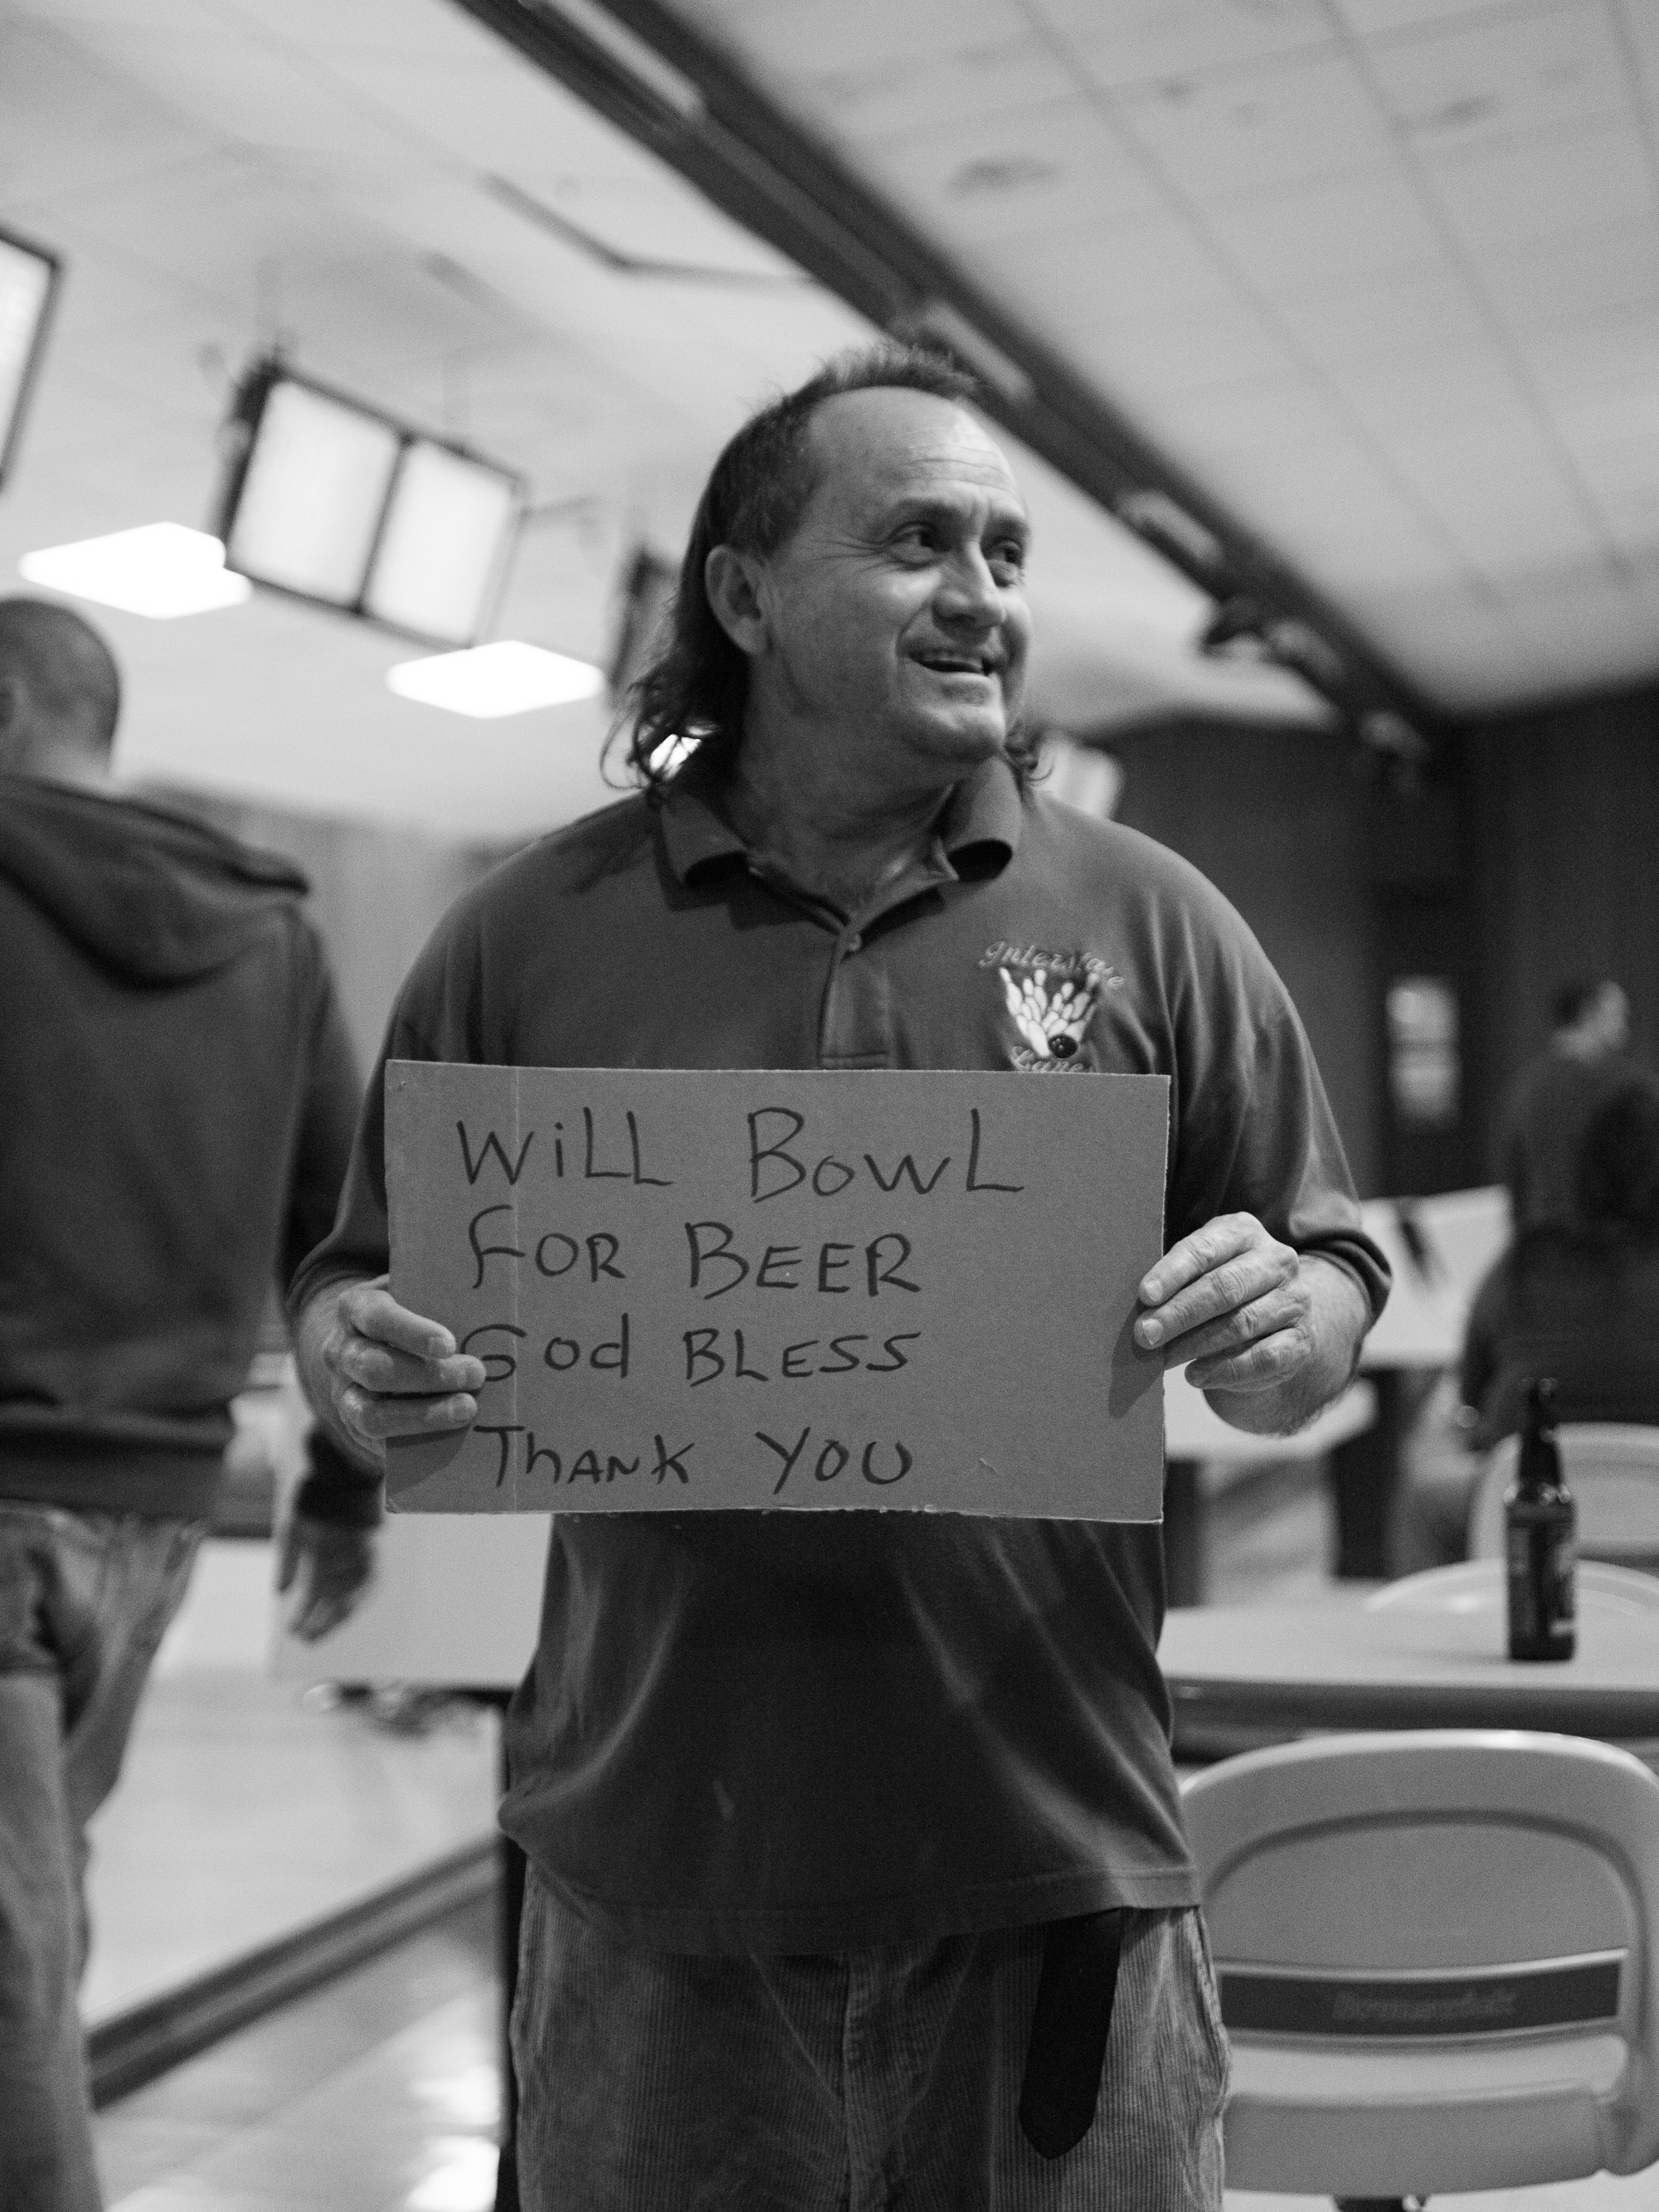 Interstate
Lanes
WiLL BowL
FOR BEER
God BLESS
ThANK YOU
Brunswick